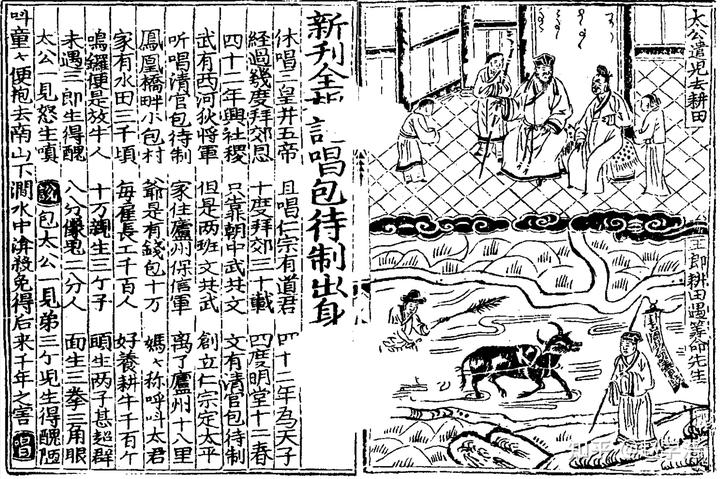 太公遣児去耕田
三郎耕田遇算命先生
新刊全說唱包待制出身
休唱三皇并五帝 且唱仁宗有道君 四十二年為天子
經過幾度拜郊恩 十度拜郊三十載 四度明堂十二春
四十二年興社稷 只靠朝中武共文 文有清官包待制
武有西河狄將軍 但是两班文共武 創立仁宗定太平
听唱清官包待制 家住廬州保信軍 离了廬州十八里
鳳凰橋畔小包村 爺是有錢包十万 媽々称呼呌太君
家有水田三千頃 每雇長工千百人 好養耕牛千百个
鳴鑼便是放牛人 十万親生三个子 頭生两子甚超群
未遇三郎生得醜 八分像鬼二分人 面生三拳三角眼
太公一見怒生嗔 說 包太公一見第三个児生得醜陋
呌童々便抱去南山下澗水中渰殺免得后来千年之害 唱
知乎